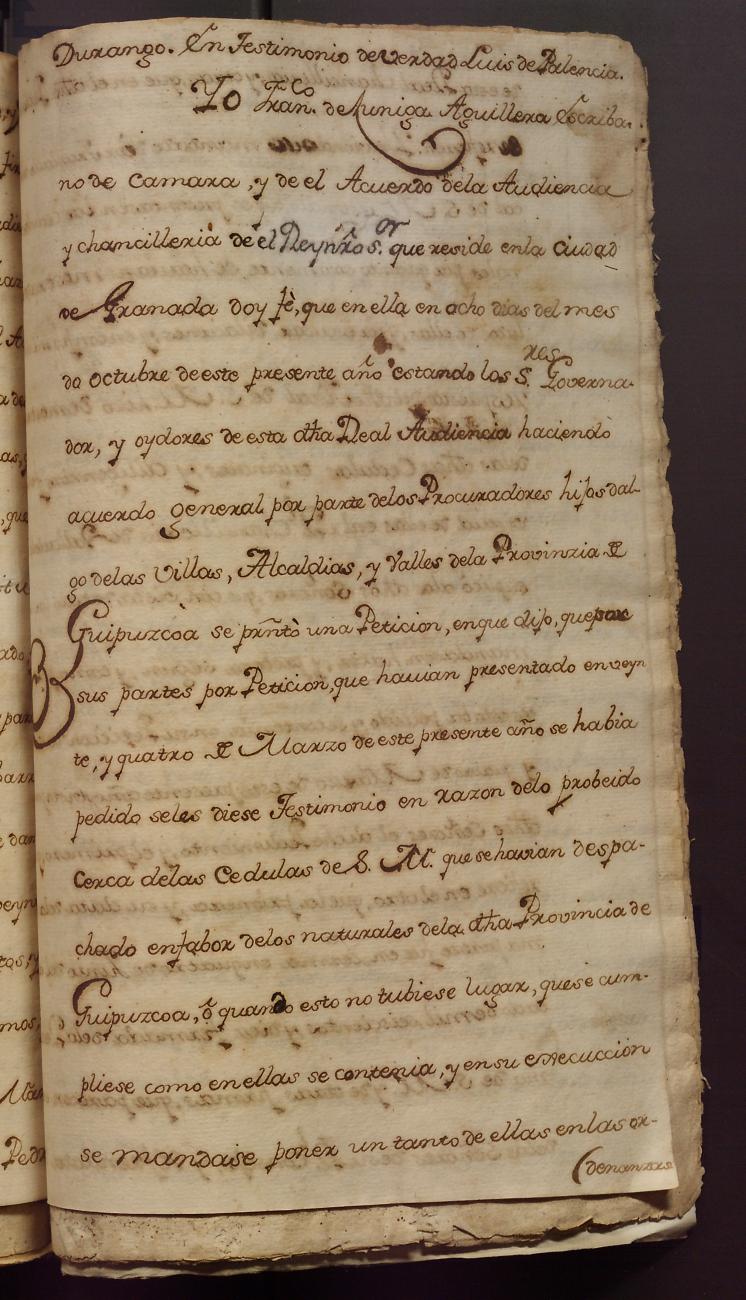 Durango. En Testimonio de verdad Luis de Palencia.
Yo Fran.co de Zuniga Aguillera Escriba.
no de Camara, y de el Acuerdo dela Audiencia
y chancilleria de el Reyno ñro S.or que reside enla Ciudad
de Granada doy fè, que en ella en ocho dias del mes
de octubre de este presente año estando los S.res Governa-
dor, y oydores de esta dha Real Audiencia haciendo
aquerdo general por parte delos Procuradores hijos dal-
go delas Villas, Alcaldias, y Valles dela Provinzia de
Guipuzcoa se prñtò una Peticion, en que dijo, que por
sus partes por Peticion, que havian presentado en veyn
te, y quatro de Marzo de este presente año se habia
pedido seles diese Testimonio en razon delo probeido
Cerca delas Cedulas de S. M. que se havian despa-
chado en fabor delos naturales dela dha Provincia de
Guipuzcoa, ò quando esto no tubiese lugar, que se cum-
pliese como en ellas se contenia, y en su execuccion
se mandase poner un tanto de ellas en las or-
(denanzas